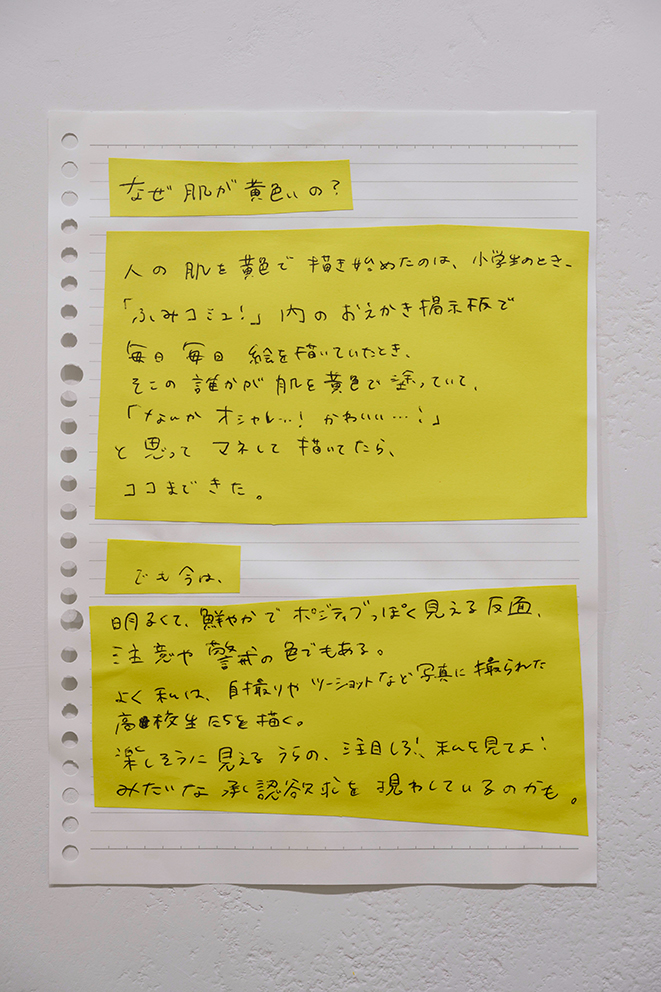 なぜ 肌が 黄色いの?
人の 肌を 黄色で 描き始めたのは、小学生のとき、
「ふみコミュ!」内の おえかき掲示板で
毎日 毎日 絵を描いていたとき、
そこの 誰かが 肌を 黄色で 塗っていて、
「なんか オシャレ…! かわいい…!」
と 思って マネして 描いてたら、
ココまで きた。
でも 今は、
明るくて、鮮やかで ポジティブっぽく 見える 反面、
注意や 警戒の 色でもある。
よく 私は、自撮りや ツーショットなど 写真に 撮られた
高校生 たちを 描く。
楽しそうに 見える うらの、注目しろ!、私を見てよ!
みたいな 承認欲求を 現わしているのかも。